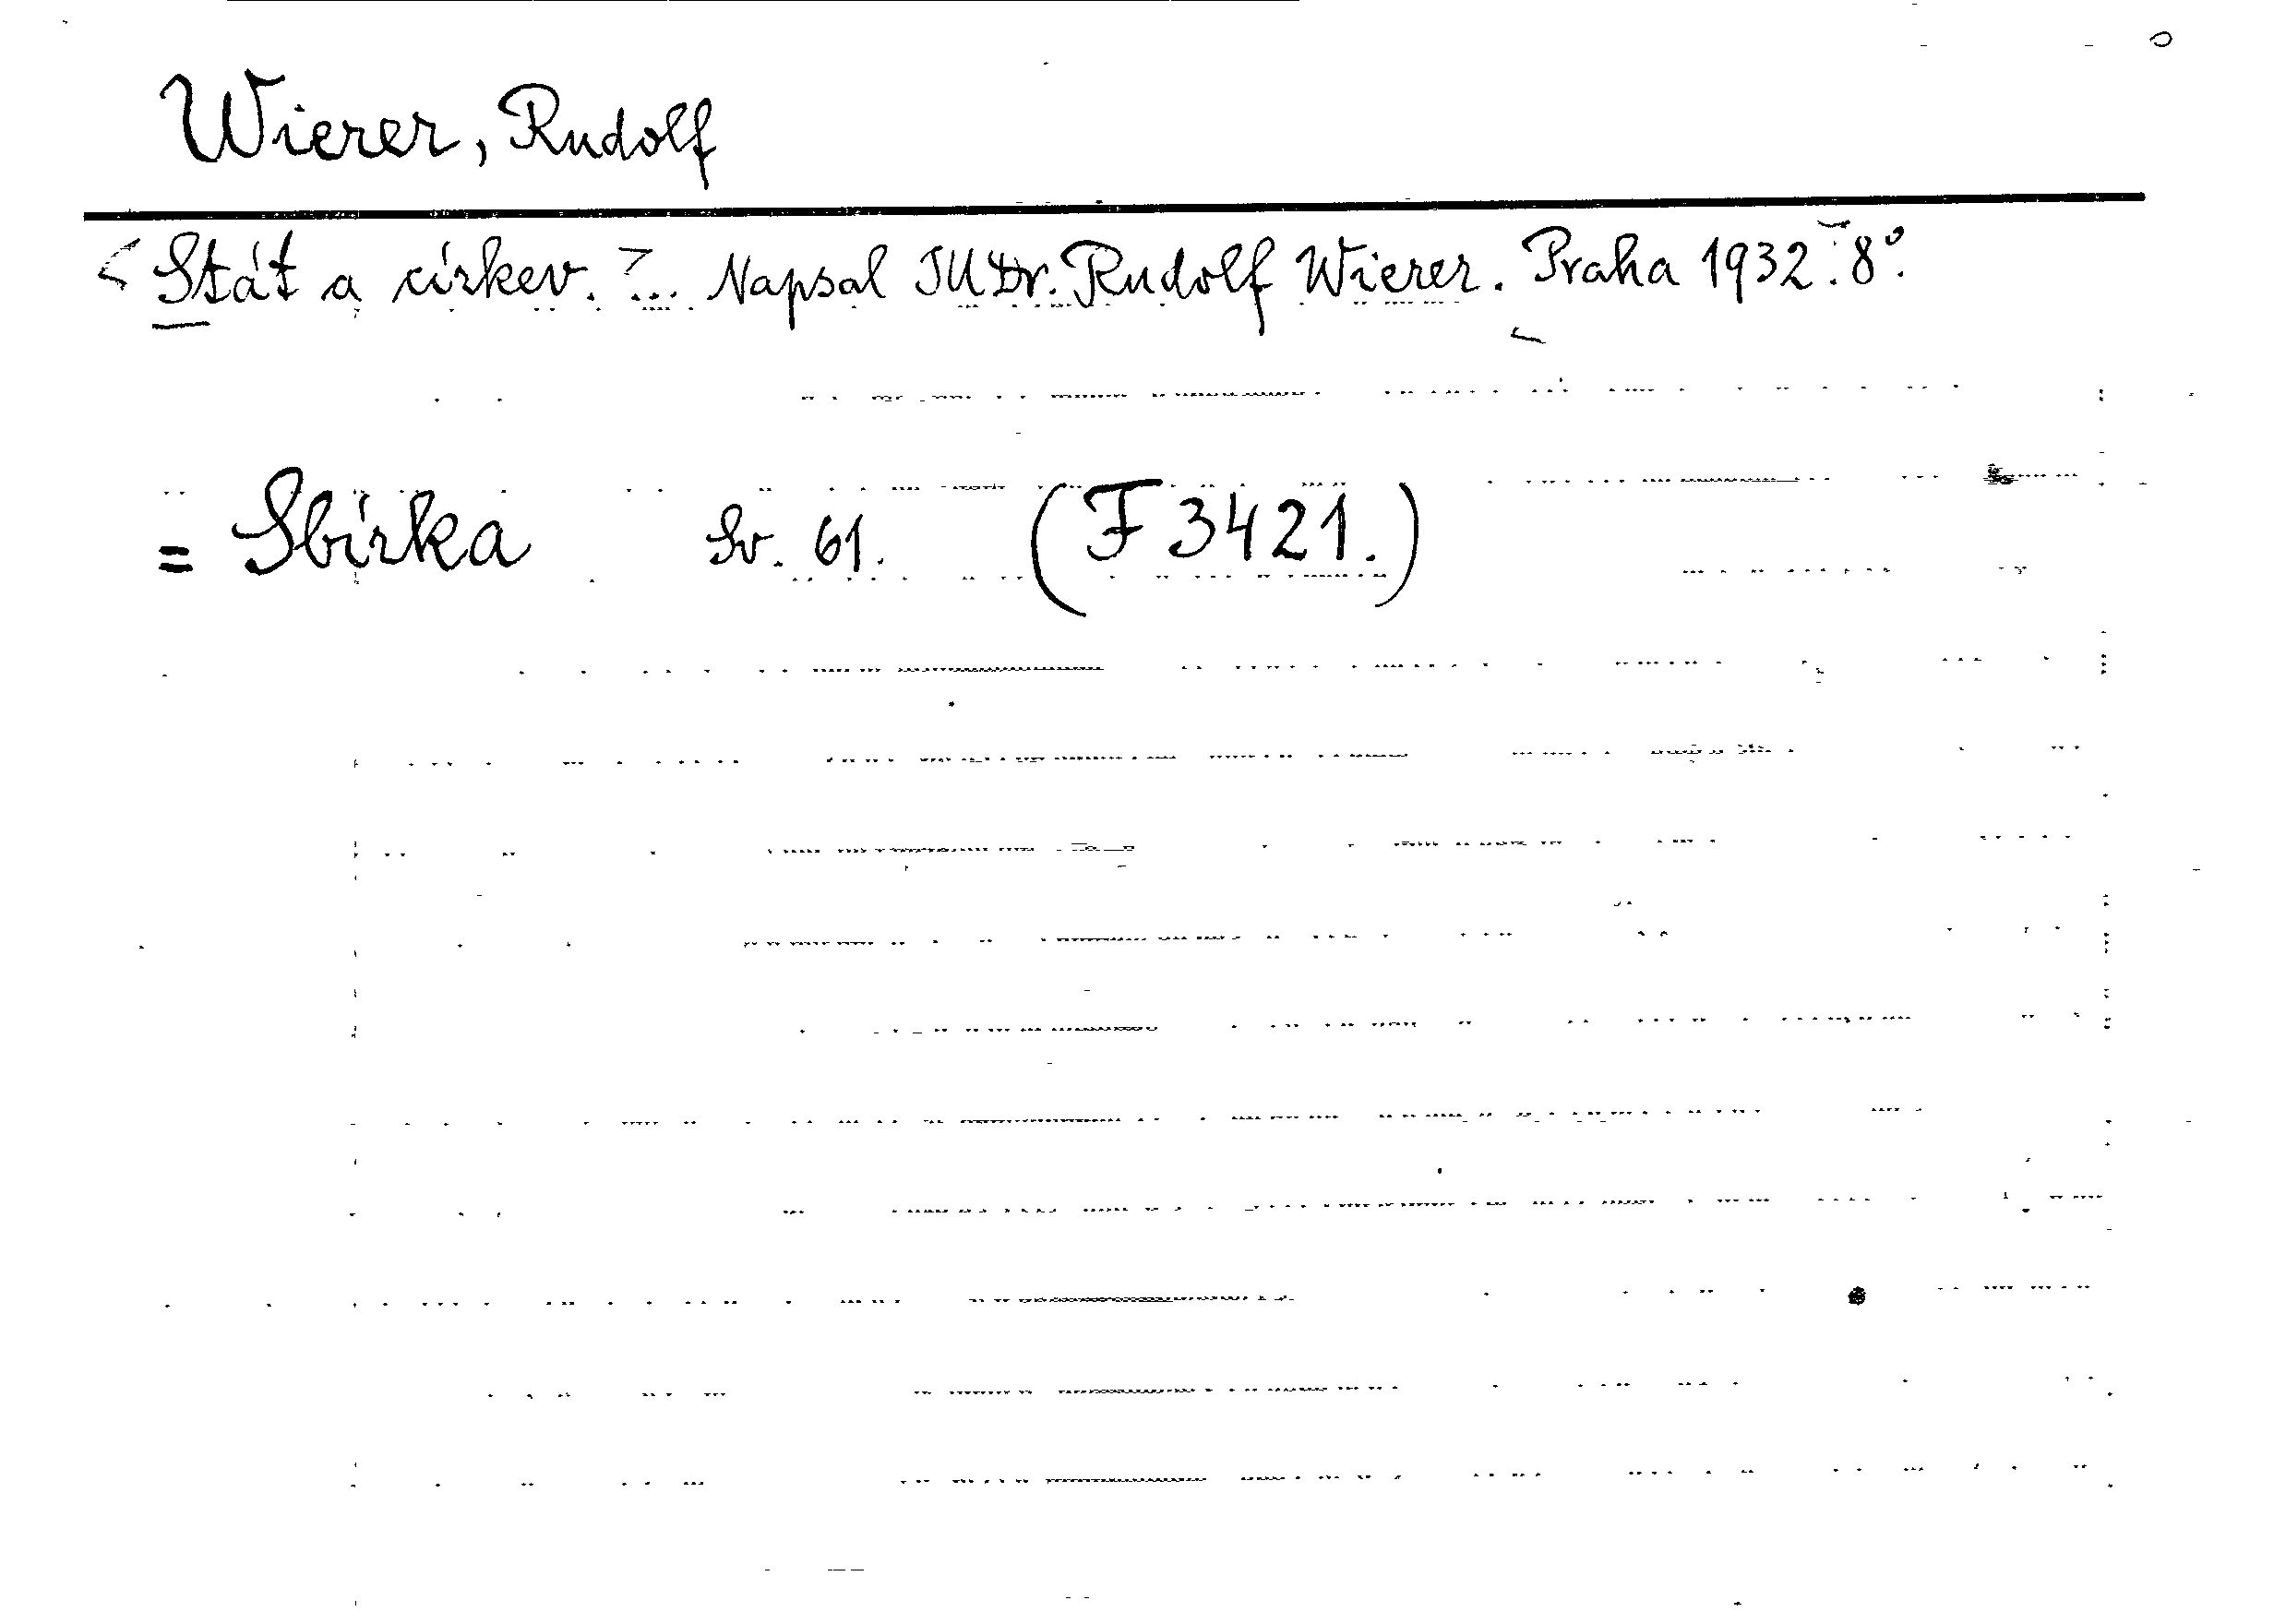 Wierer, Rudolf
<Stát a církev.> ... Napsal JUDr. Rudolf Wierer. Praha 1932. 8°.
= Sbírka Sv. 61. (F 3421.)